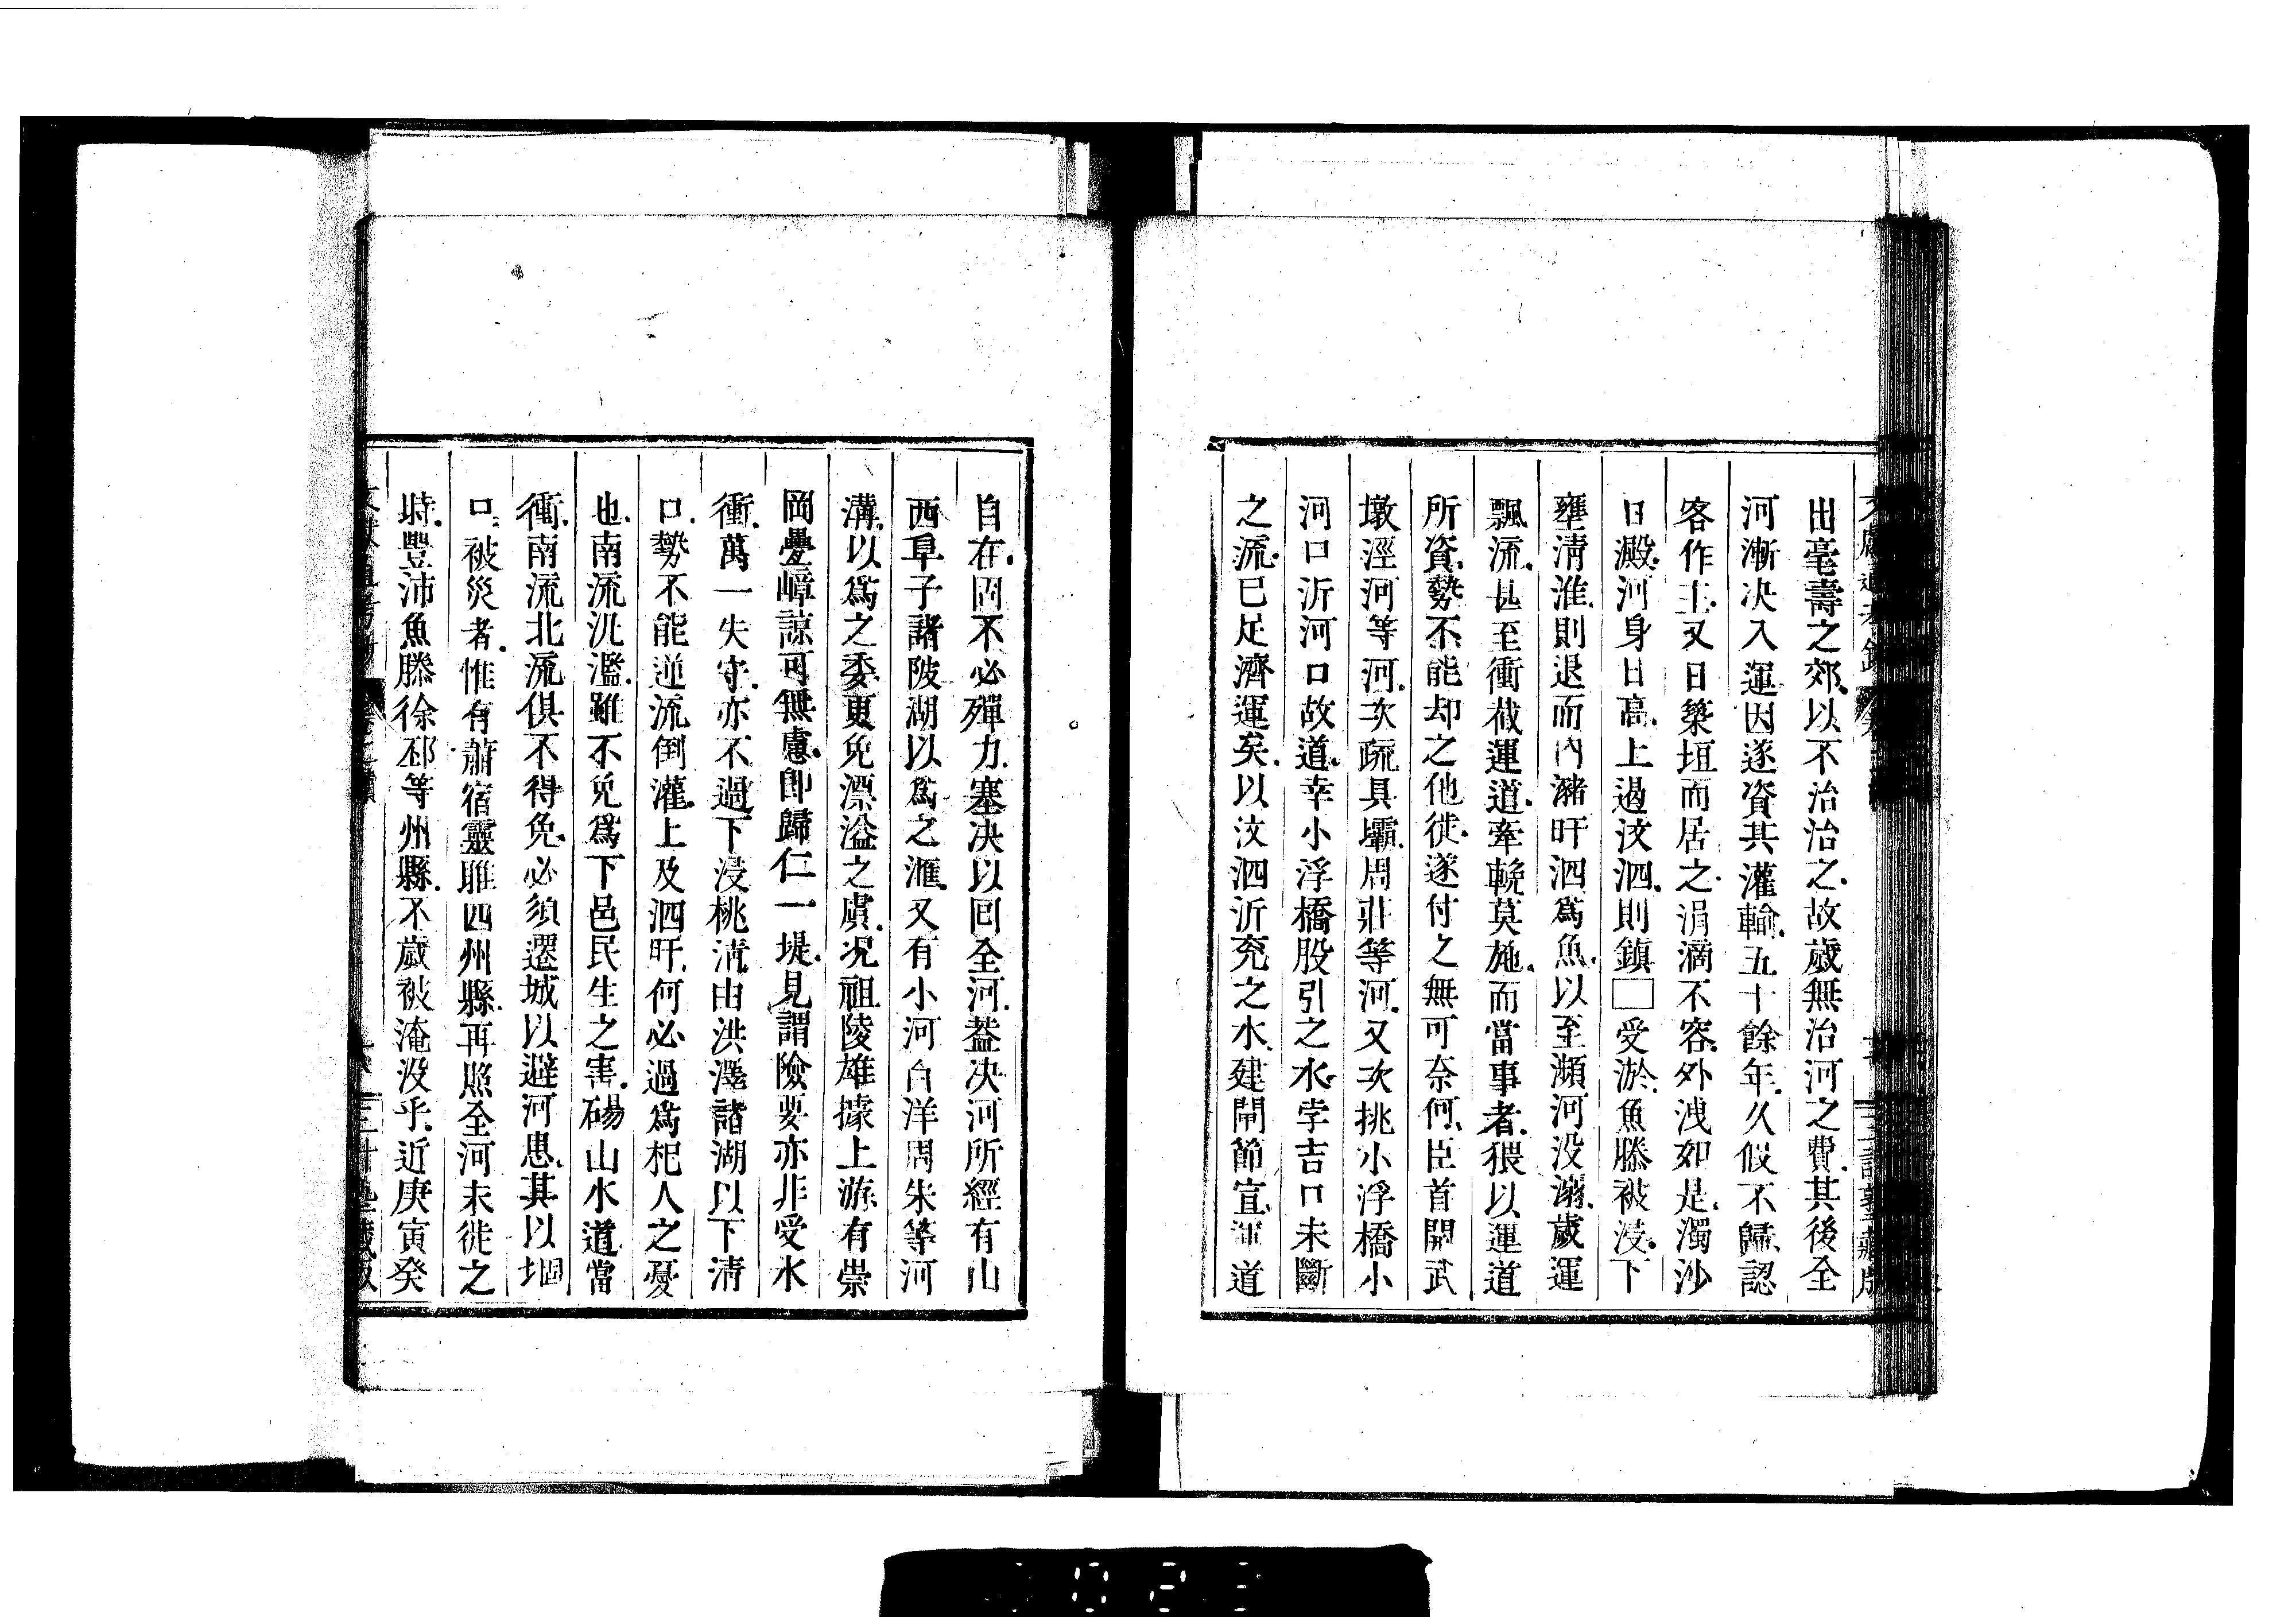 出毫壽之郊以不治治之故歲無治河之費其後全
河漸决入運因遂資其灌輸五十餘年久假不歸認
客作主又日築垣而居之涓滴不容外洩如是濁沙
日澱河身日高上過汶泗則鎮□受淤魚滕被浸下
壅清淮則退而內瀦盱泗爲魚以至瀕河没溺歲運
飄流甚至衝截運道牽輓莫施而當事者猥以運道
所資勢不能却之他徙遂付之無可奈何臣首開武
墩涇河等河次疏具壩周莊等河又次挑小浮橋小
河口沂河口故道幸小浮橋股引之水孛吉口未斷
之流已足濟運矣以汶泗沂兖之水建閘節宣運道
自在固不必殫力塞决以回全河葢决河所經有山
西阜子諸陂湖以爲之滙又有小河白洋周朱等河
溝以爲之委更免漂溢之虞况祖陵雄據上游有崇
岡疊嶂諒可無慮卽歸仁一堤見謂險要亦非受水
衝萬一失守亦不過下浸桃清由洪澤諸湖以下清
口勢不能逆流倒灌上及泗盱何必過爲杞人之憂
也南流汎濫雖不免爲下邑民生之害碭山水道當
衝南流北流俱不得免必須遷城以避河患其以堌
口被災者惟有蕭宿靈睢四州縣再照全河未徙之
時豐沛魚滕徐邳等州縣不歲被淹没乎近庚寅癸